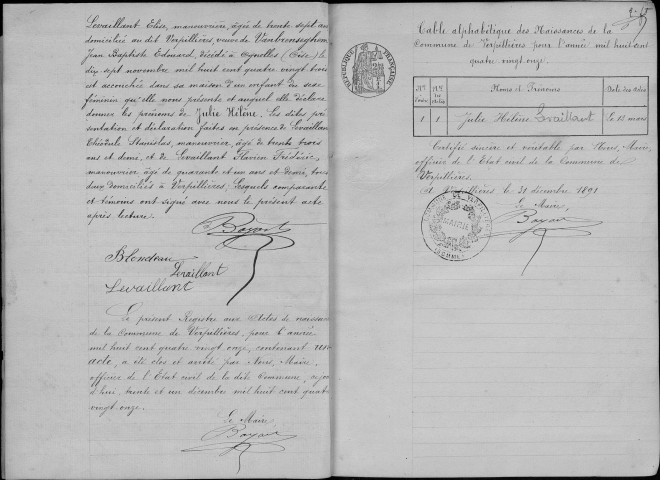 Levaillant Elisa, manouvrière, âgée de trente sept ans
domiciliée au dit Verpillières, veuve de
Jean Baptiste Edouard, décédé à Ognolles (Oise) le
dix sept novembre mil huit cent quatre vingt trois
est accouchée dans sa maison d'un enfant du sexe
féminin qu'elle nous présente et auquel elle déclare
donner les prénoms de Julie Hélène. Les dites pré-
sentation et déclaration faites en présence de Levaillant
Théodule Stanislas, manouvrier, âgé de trente trois
ans et demi, et de Levaillant Flavien Frédéric,
manouvrier âgé de quarante et un ans et demi, tous
deux domiciliés à Verpillières, lesquels comparante
et témoins ont signé avec nous le présent acte
après lecture.
Levaillant
Levaillant
Le présent Registre aux Actes de naissance
de la Commune de Verpillières, pour l'année
mil huit cent quatre vingt onze, contenant un
acte, a été clos et arrêté par Nous, Maire,
officier de l'Etat civil de la dite Commune, ce jour
d'hui, trente et un décembre mil huit cent quatre
vingt onze.
Le Maire
REPUBLIQUE FRANÇAISE
Table alphabétique des Naissances de la
Commune de Verpillières pour l'année mil huit cent
quatre vingt onze.
Noms et Prénoms
Date des Actes
1 1 Julie Hélène Levaillant Le 13 mars
Certifié sincère et véritable par Nous, Maire,
officier de l'Etat civil de la Commune de
Verpillières.
A Verpillières le 31 décembre 1891
Le Maire,
MAIRIE